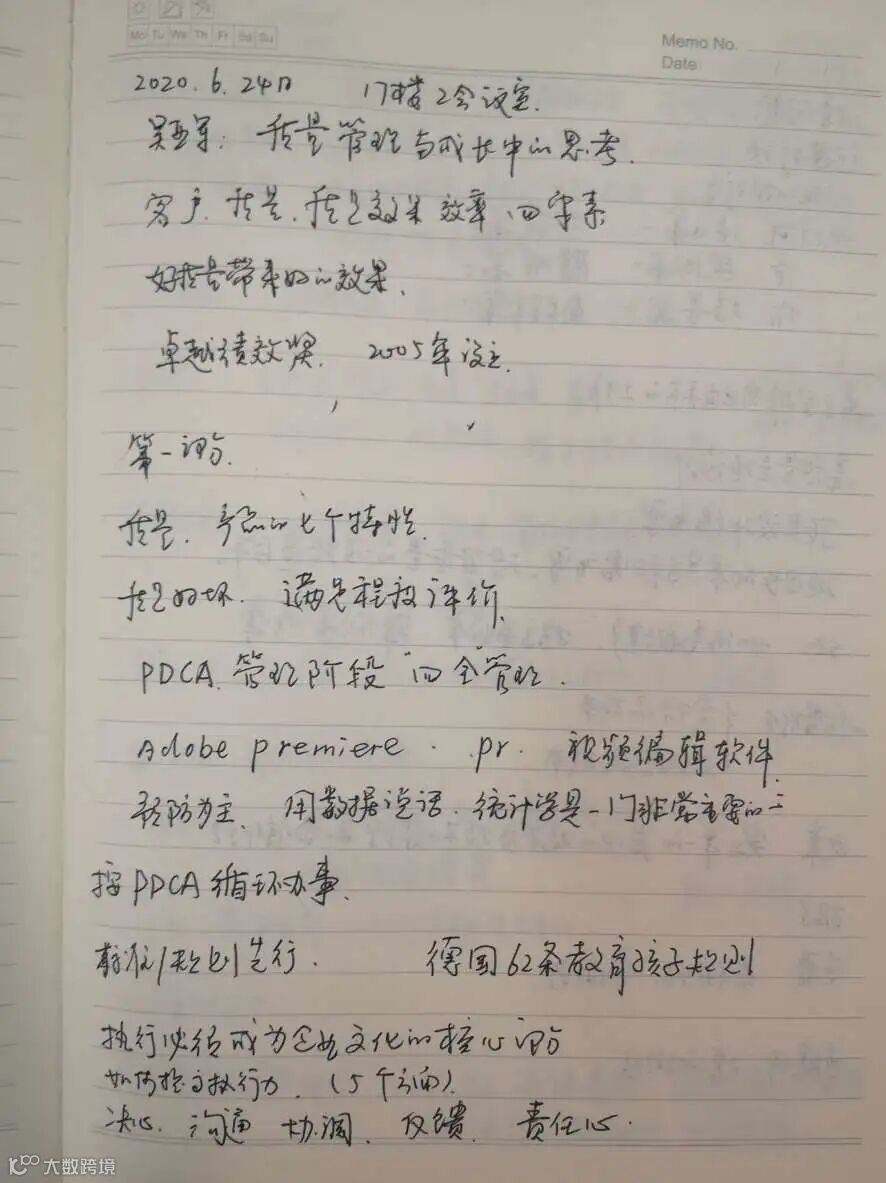 Mo Tu We Th Fr Sa Su
Memo No.
Date
2020.6.24日 17楼2会议室.
吴亚军: 质量管理与成长中的思考.
客户.质量.质量效果 效率、四字素
好质量带来好的效果.
卓越绩效奖. 2005年设立.
第一部分.
质量. 产品的七个特性.
质量好坏. 满足程度评价.
PDCA.管理阶段"四全"管理.
Adobe premiere. pr. 视频编辑软件.
预防为主、用数据说话.统计学是一门非常重要的工
按PDCA循环办事.
标准/规划先行. 德国62条教育孩子规则
执行必须成为企业文化的核心部分
如何提高执行力.(5个方面).
决心. 沟通 协调. 反馈. 责任心.
大数跨境